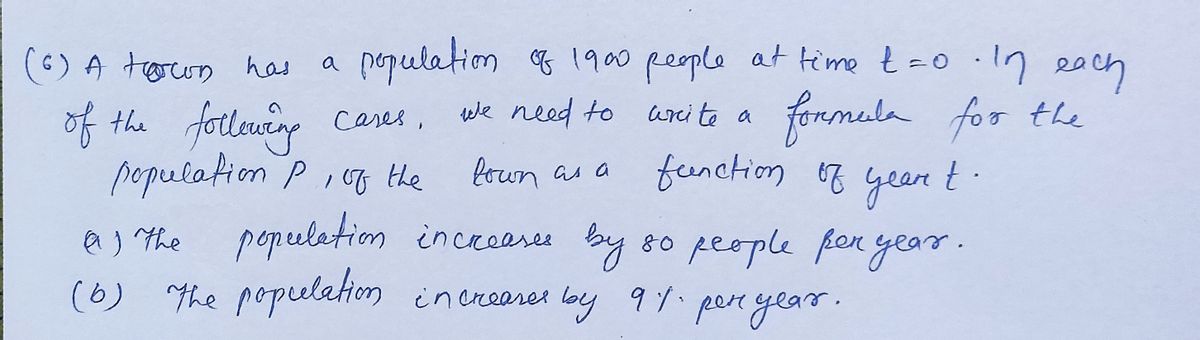 (6) A town has a population of 1900 people at time t=0. In each
of the following cases, we need to write a formula for the
population P, of the town as a function of year t.
a) The population increases by 80 people per year.
(b) The population increases by 9%. per year.